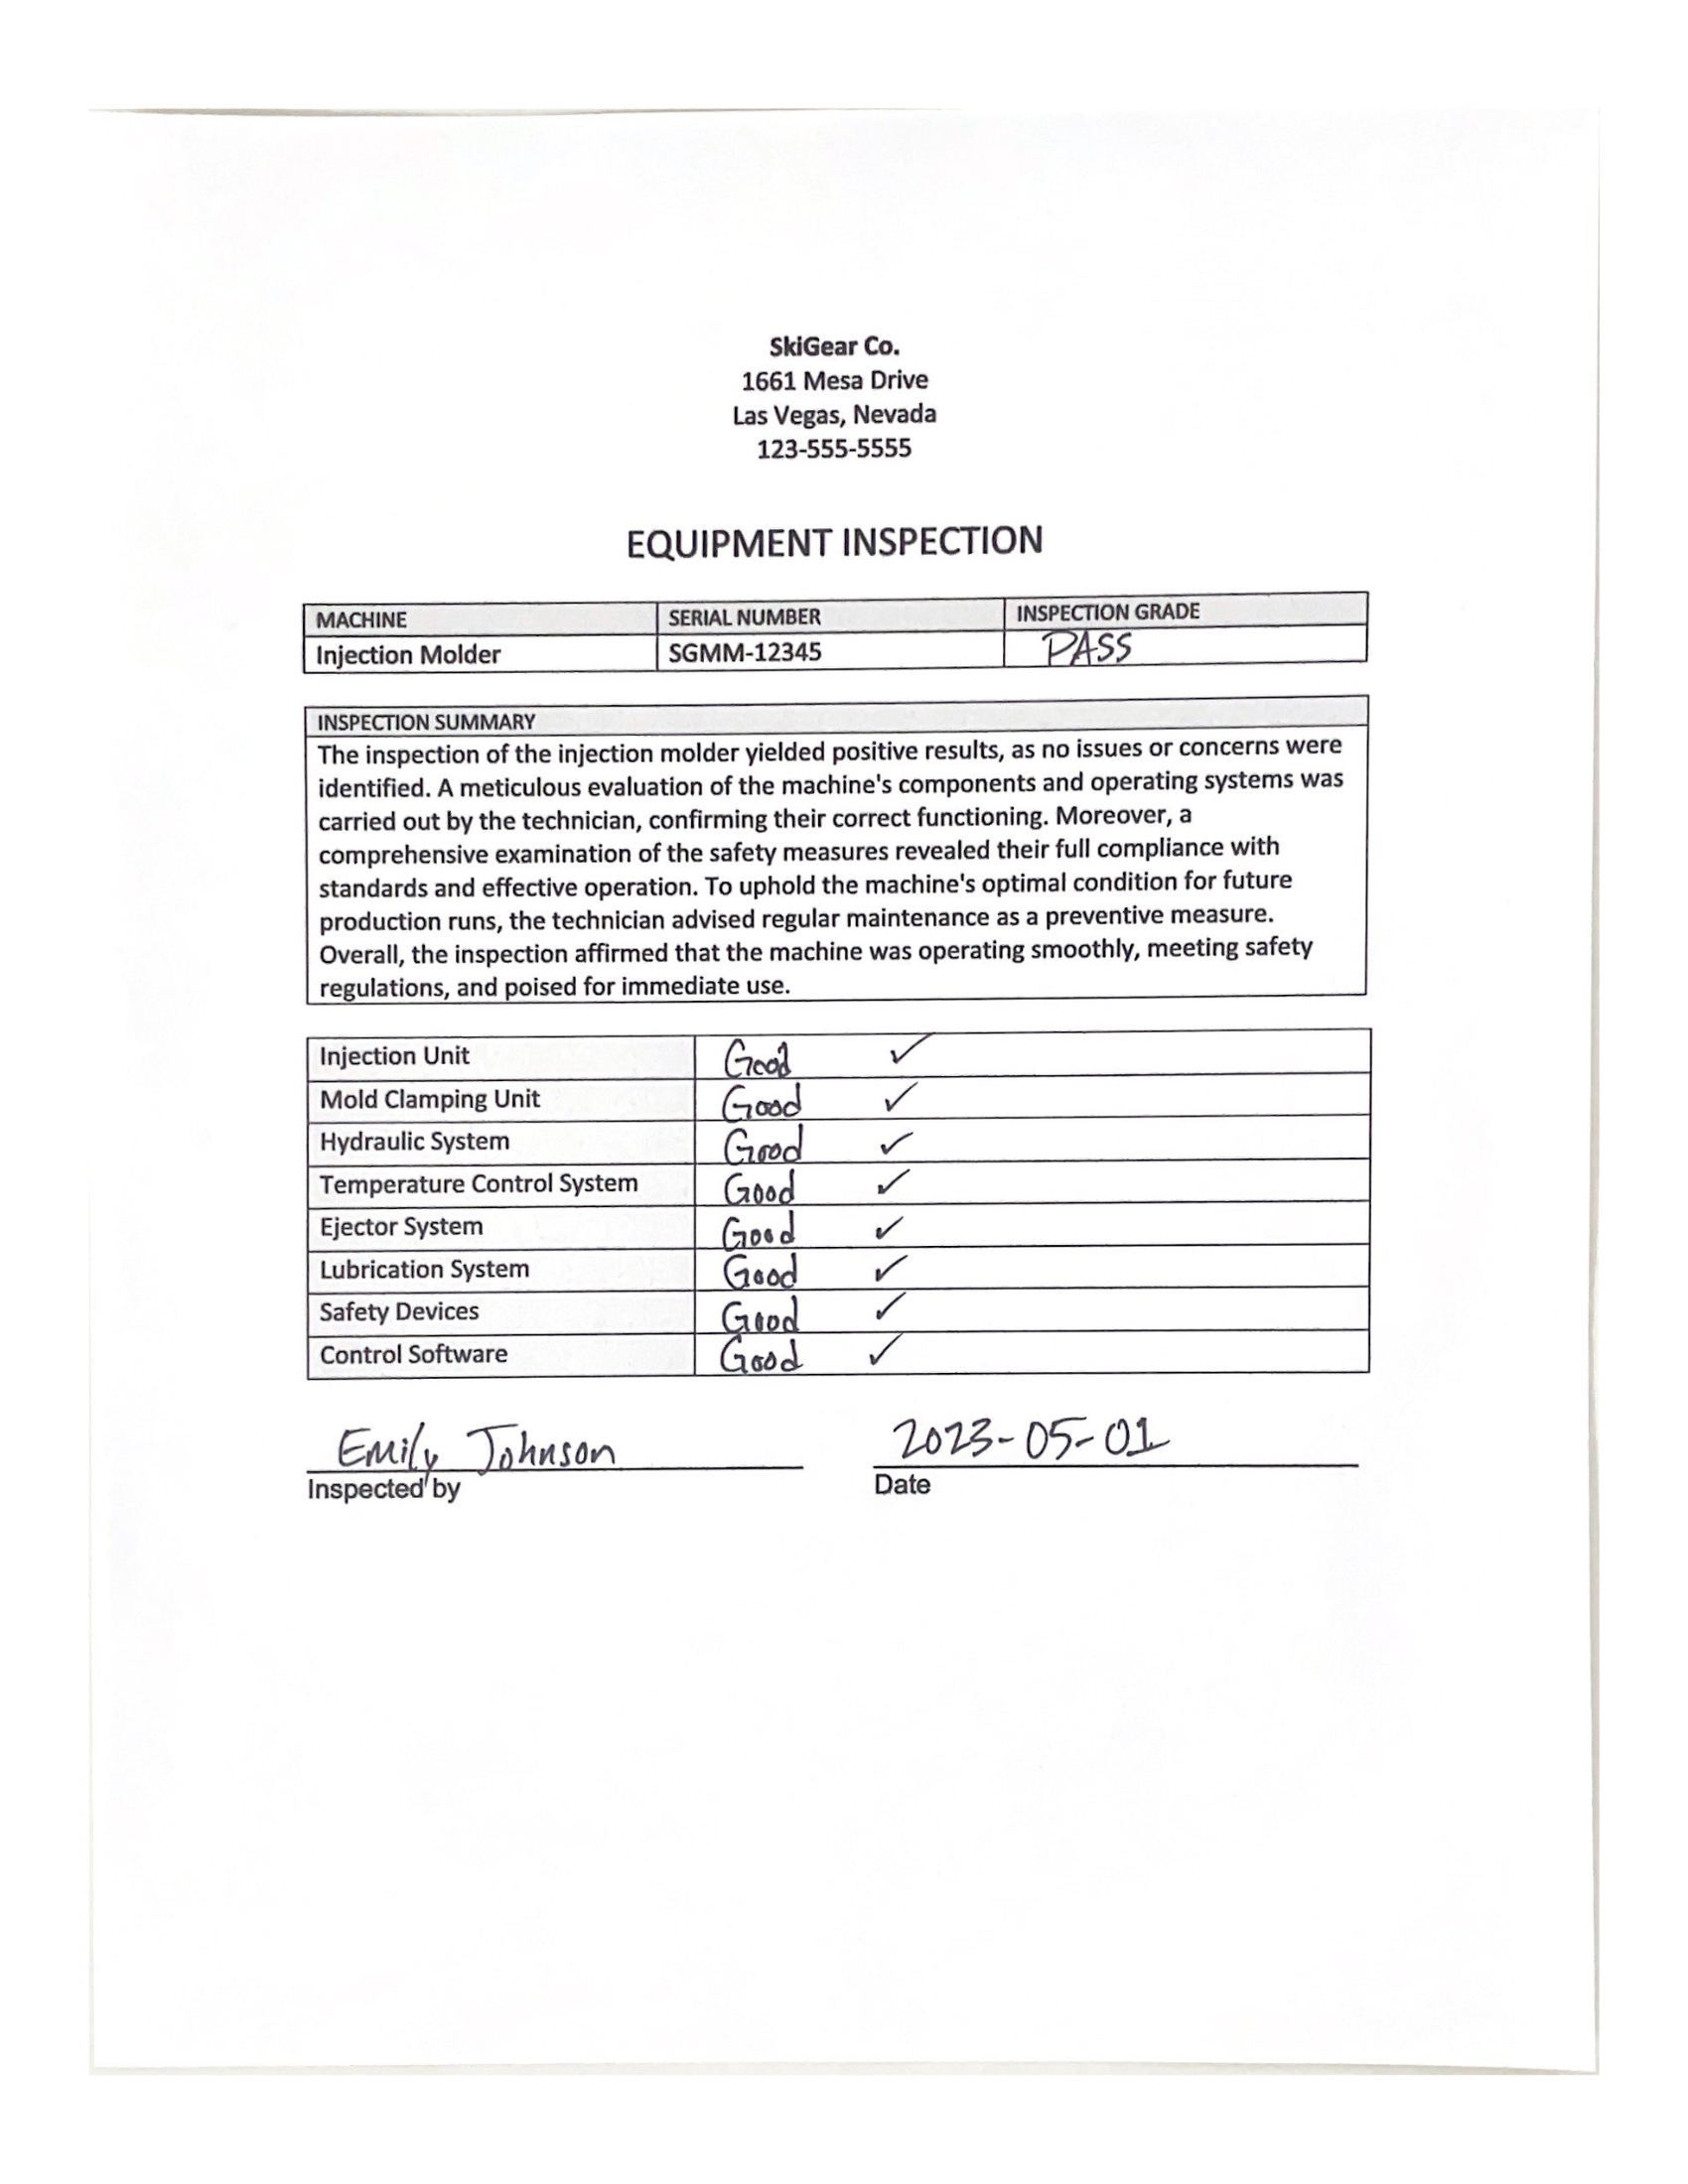 SkiGear Co.
1661 Mesa Drive
Las Vegas, Nevada
123-555-5555
EQUIPMENT INSPECTION
MACHINE SERIAL NUMBER INSPECTION GRADE
Injection Molder SGMM-12345 PASS
INSPECTION SUMMARY
The inspection of the injection molder yielded positive results, as no issues or concerns were
identified. A meticulous evaluation of the machine's components and operating systems was
carried out by the technician, confirming their correct functioning. Moreover, a
comprehensive examination of the safety measures revealed their full compliance with
standards and effective operation. To uphold the machine's optimal condition for future
production runs, the technician advised regular maintenance as a preventive measure.
Overall, the inspection affirmed that the machine was operating smoothly, meeting safety
regulations, and poised for immediate use.
Injection Unit Good ✓
Mold Clamping Unit Good ✓
Hydraulic System Good ✓
Temperature Control System Good ✓
Ejector System Good ✓
Lubrication System Good ✓
Safety Devices Good ✓
Control Software Good ✓
Emily Johnson 2023-05-01
Inspected by Date